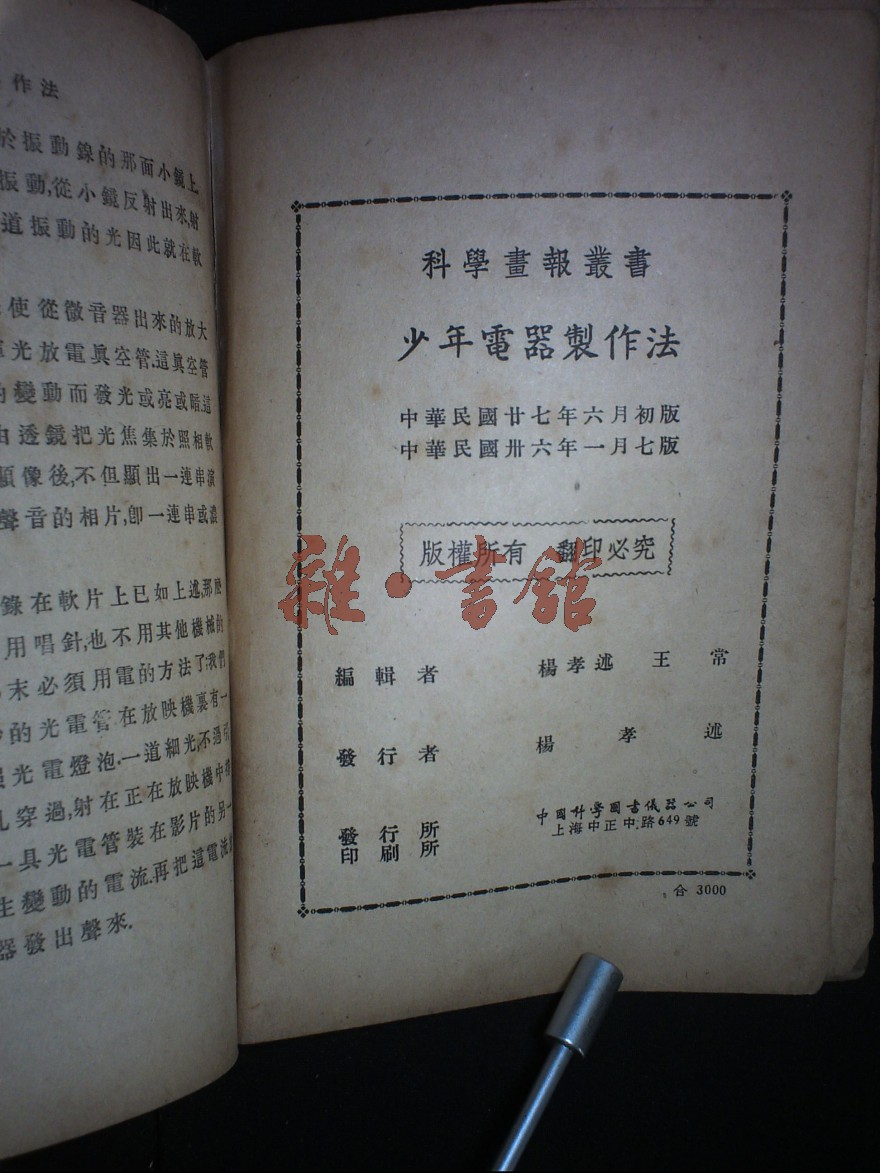 作法
於振動鎳的那面小鏡上
振動,從小鏡反射出來,射
道振動的光因此就在軟
使從微音器出來的放大
光放電眞空管.這眞空管
變動而發光或亮或暗.這
由透鏡把光焦集於照相軟
顯像後,不但顯出一連串演
聲音的相片,卽一連串或濃
錄在軟片上已如上述,那麽
用唱針,也不用其他機械的
末必須用電的方法了.我們
的光電管在放映機裏有一
光電燈泡.一道細光,不過
孔穿過,射在正在放映機中
一具光電管裝在影片的另一
生變動的電流.再把這電流
器發出聲來.
科學畫報叢書
少年電器製作法
中華民國廿七年六月初版
中華民國卅六年一月七版
版權所有 翻印必究
雜·書館
編輯者 楊孝述 王常
發行者 楊孝述
發行所
印刷所
中國科學圖書儀器公司
上海中正中路649號
合 3000